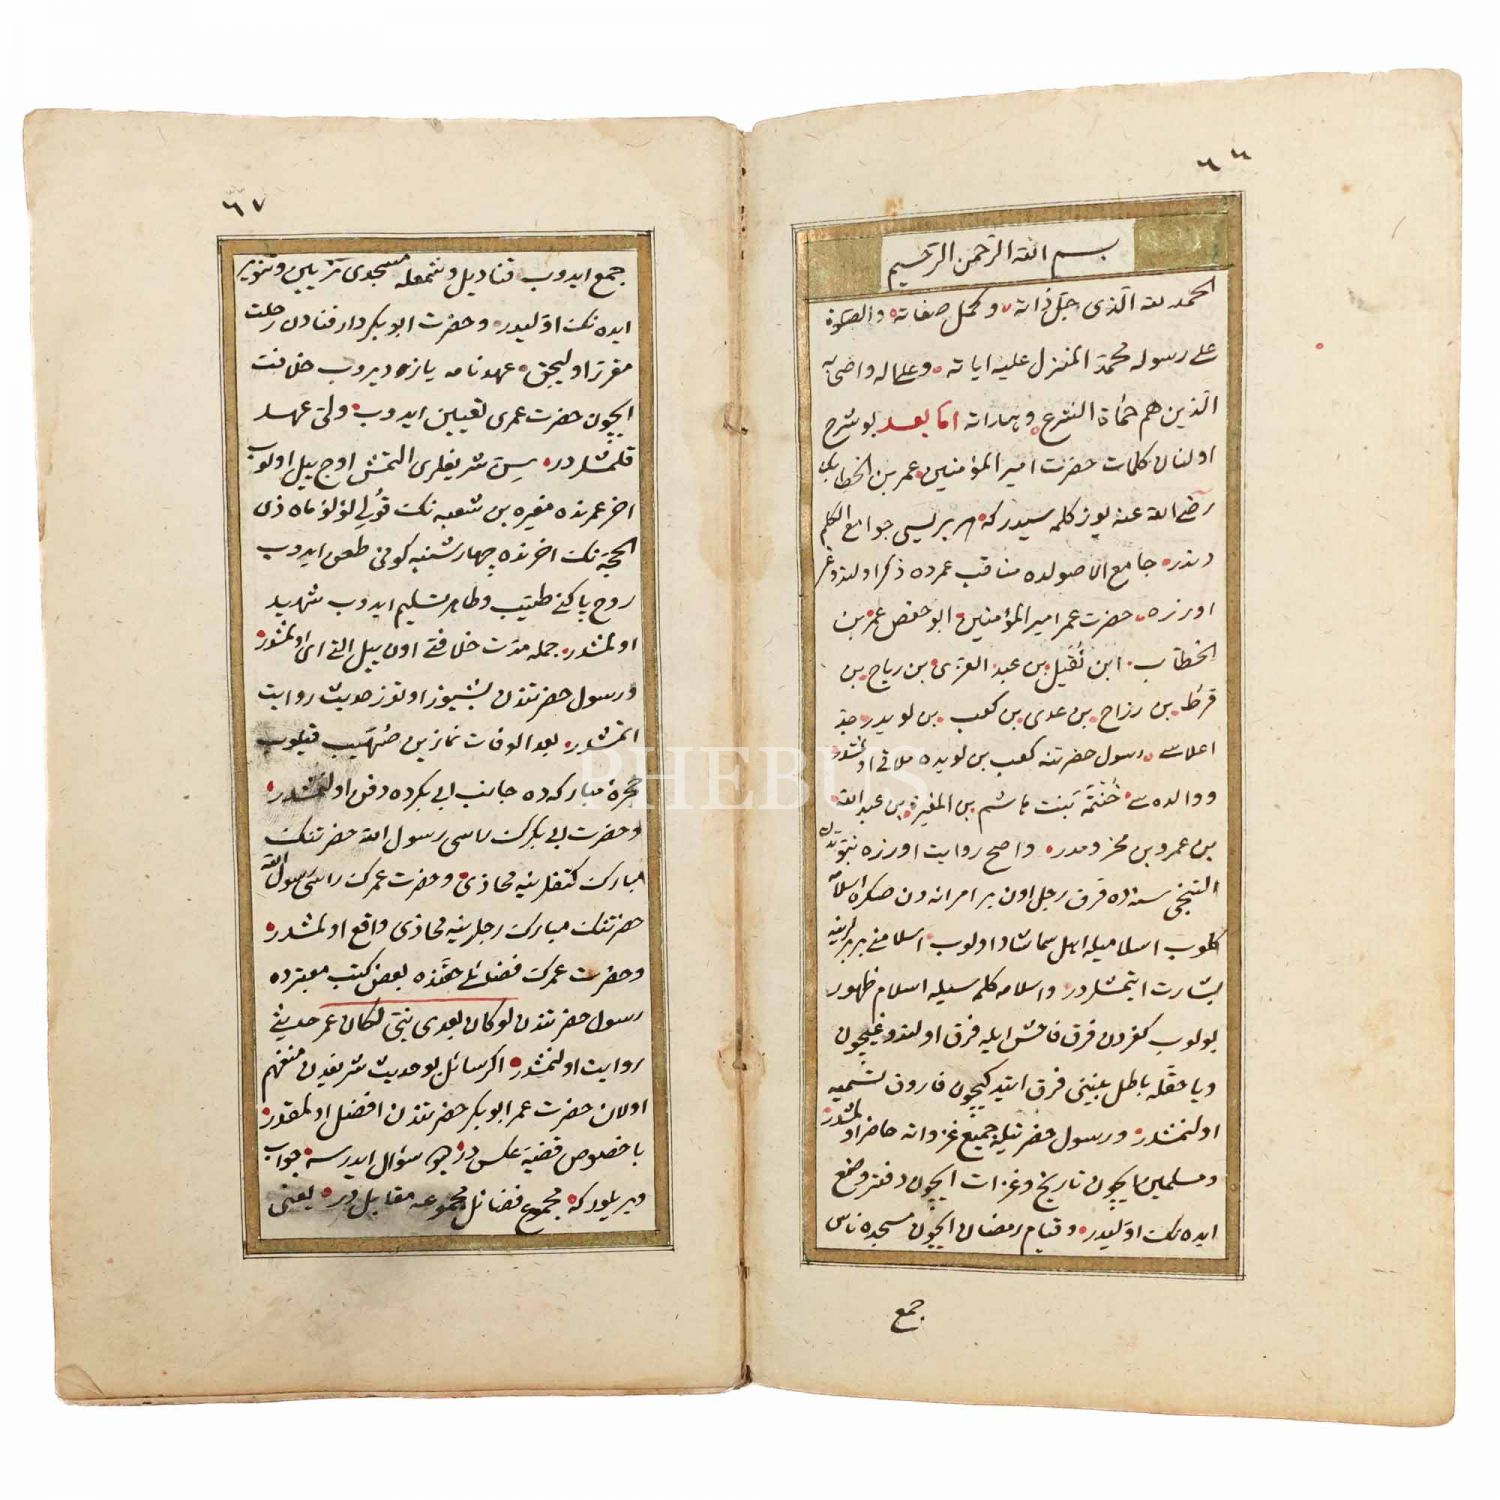 ٦٦
بسم الله الرحمن الرحيم
الحمد لله الذى جل ذاته وكمل صفاته والصلوة
على رسوله محمد المنزل عليه اياته وعلى اله واصحابه
الذين هم حماة الشرع اما بعد بو شرح
اولنان كلمات حضرت امير المؤمنين عمر بن الخطابك
رضى الله عنه يوز كلمه سيدر كه هر بريسى جوامع الكلم
دندر جامع الاصولده مناقب عمرده ذكر اولندوغى
اوزره حضرت عمر امير المؤمنين ابو حفص عمر بن
الخطاب ابن نُفَيل بن عبد العزى بن رياح بن
قرط بن رزاح بن عدى بن كعب بن لويدر جد
اعلاسى رسول حضرتنه كعب بن لويده ملاقى اولمشدر
ووالده سى حَنْتَمَه بنت هاشم بن المغيرة بن عبد الله
بن عمرو بن مخزومدر واصح روايت اوزره نبوتدن
التنجى سنه ده قرق رجل اون بر امرائه دن صكره اسلامه
كلوب اسلاميله اهل سما شاد اولوب اسلامنى بربرلرينه
بشارت ايتمشلردر واسلامه كلمه سيله اسلام ظهور
بولوب كفردن فرق فاحش ايله فرق اولندوغيچون
ويا حقله باطل بينى فرق ايتديكيچون فاروق تسميه
اولنمشدر ورسول حضرتيله جميع غزواته حاضر اولمشدر
ومسلمين ايچون تاريخ وغزات ايچون دفتر وضع
ايده نك اوليدر وقيام رمضان ايچون مسجده ناس
جمع
٦٧
جمع ايدوب قناديل وشمعله مسجدى تزيين وتنوير
ايده نك اوليدر وحضرت ابو بكر دار فنادن رحلت
مقرر اوليجق عهدنامه يازه ديروب خلافت
ايچون حضرت عمرى تعيين ايدوب ولى عهد
قلمشلردر سن شريفلرى التمش اوج ييل اولوب
اخر عمرنده مغيره بن شعبه نك قولى لؤلؤ ماه ذى
الحجه نك اخرنده چهارشنبه كونى طعن ايدوب
روح پاكنى طيب وطاهر تسليم ايدوب شهيد
اولمشدر جمله مدت خلافتى اون ييل التى اى اولمشدر
ورسول حضرتندن بشيوز اوتوز حديث روايت
اتمشدر بعد الوفات نمازين صُهَيب قيلوب
حجرۀ مباركه ده جانب ابى بكرده دفن اولنمشدر
وحضرت ابى بكرك راسى رسول الله حضرتنك
مبارك كتفلرينه محاذى وحضرت عمرك راسى رسول الله
حضرتنك مبارك رجلرينه محاذى واقع اولمشدر
وحضرت عمرك فضائلى حقنده بعض كتب معتبرده
رسول حضرتندن لو كان بعدى نبى لكان عمر حديثى
روايت اولنمشدر اكر سائل بو حديث شريفدن منفهم
اولان حضرت عمر ابو بكر حضرتندن افضل اولمقدر
باخصوص قضيه عكس در ديو سؤال ايدرسه جواب
ويريلور كه مجموع فضائل مجموعه مقابل در يعنى
PHEBUS